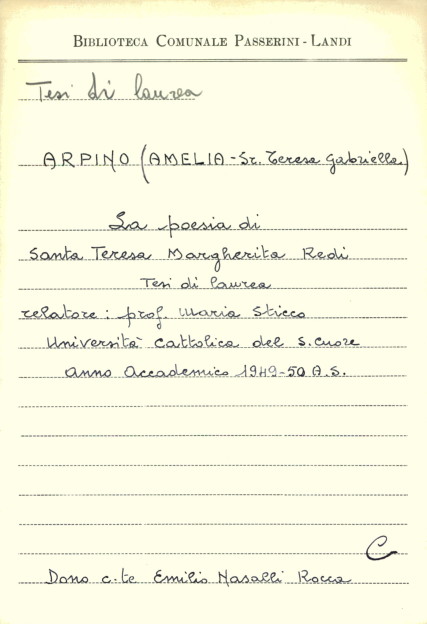 BIBLIOTECA COMUNALE PASSERINI - LANDI
Tesi di laurea
ARPINO (AMELIA - Sr. Teresa Gabriella)
La poesia di
Santa Teresa Margherita Redi
Tesi di laurea
relatore: prof. Maria Sticco
Università Cattolica del S. Cuore
Anno Accademico 1949-50 A.S.
C
Dono c.te Emilio Nasalli Rocca